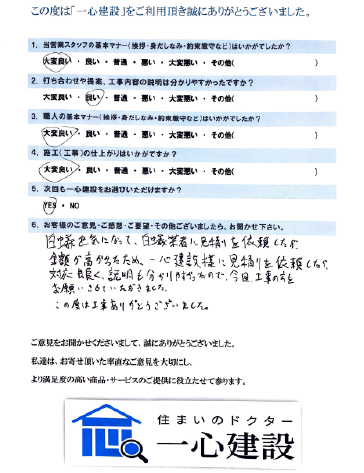 この度は「一心建設」をご利用頂き誠にありがとうございました。
1. 当営業スタッフの基本マナー(挨拶・身だしなみ・約束厳守など)はいかがでしたか?
大変良い・ 良い ・ 普通 ・ 悪い ・ 大変悪い ・ その他( )
2. 打ち合わせや提案、工事内容の説明は分かりやすかったですか?
大変良い ・ 良い ・ 普通 ・ 悪い ・ 大変悪い ・ その他( )
3. 職人の基本マナー(挨拶・身だしなみ・約束厳守など)はいかがでしたか?
大変良い ・ 良い ・ 普通 ・ 悪い ・ 大変悪い ・ その他( )
4. 施工(工事)の仕上がりはいかがですか?
大変良い ・ 良い ・ 普通 ・ 悪い ・ 大変悪い ・ その他( )
5. 次回も一心建設をお選びいただけますか?
YES ・ NO
6. お客様のご意見・ご感想・ご要望・その他ございましたら、お聞かせ下さい。
白蟻が気になって、白蟻業者に見積りを依頼したが
金額が高かったため、一心建設様に見積りを依頼したが
対応も良く、説明も分かりやすかったので、今回、工事の方を
お願いさせていただきました。
この度は工事ありがとうございました。
ご意見をお聞かせくださいまして、誠にありがとうございました。
私達は、お寄せ頂いた率直なご意見を大切にし、
より満足度の高い商品・サービスのご提供に役立たせて参ります。
住まいのドクター
一心建設